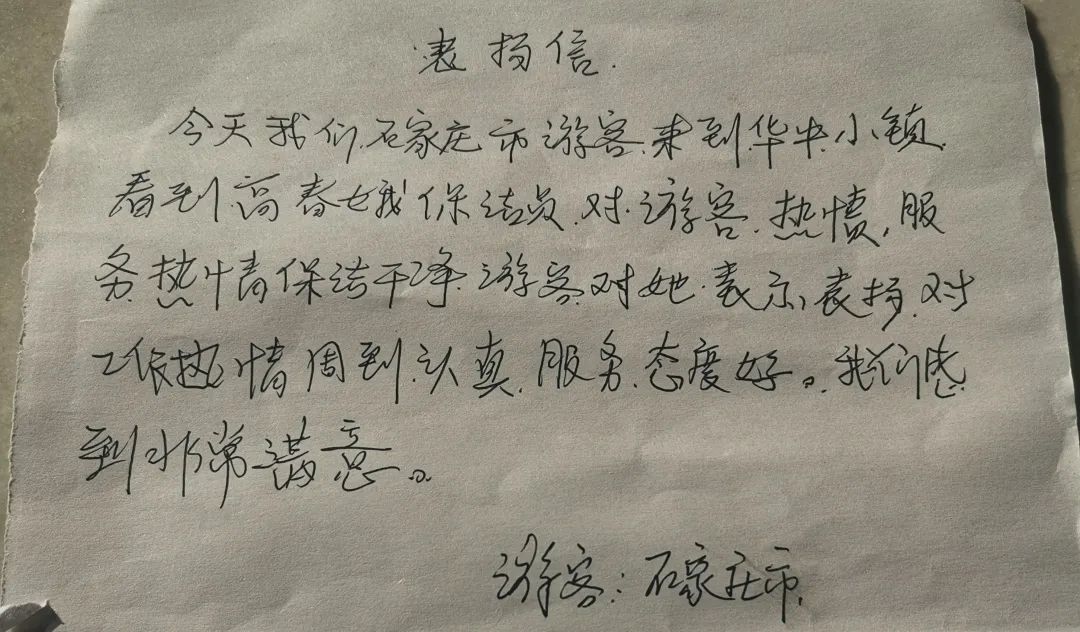 表扬信.
今天我们石家庄市游客.来到华中小镇.
看到高春娥保洁员.对游客.热情,服
务.热情保洁干净.游客.对她.表示,表扬.对
工作热情周到.认真.服务.态度好。我们感
到非常满意。
游客:石家庄市.